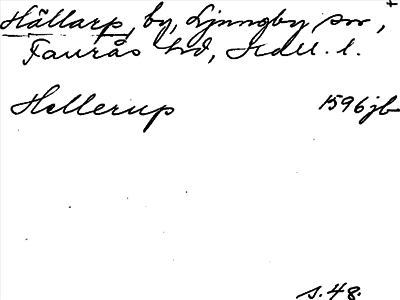 Hällarp, by, Ljungby sn,
Faurås hd, Hall. l.
Hellerup 1596 jb
s. 48.